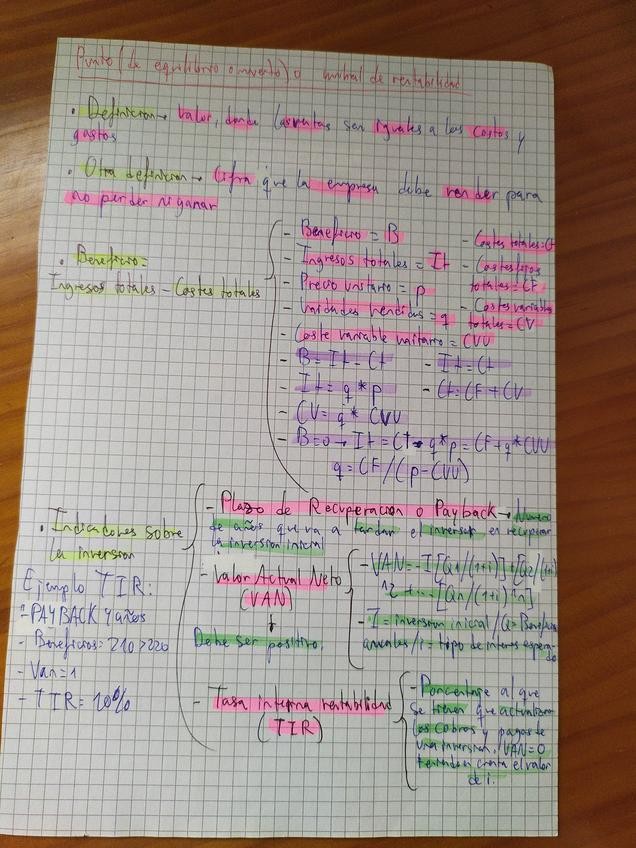 Punto (de equilibrio o muerto) o umbral de rentabilidad
· Definición → Valor, donde las ventas son iguales a los costos y
gastos
· Otra definición → Cifra que la empresa debe vender para
no perder ni ganar
· Beneficio =
Ingresos totales - Costes totales
- Beneficio = B
- Ingresos totales = It
- Precio unitario = p
- Unidades vendidas = q
- Coste variable unitario = CVU
- B = It - Ct
- It = q * p
- CV = q * CVU
- B=0 → It = Ct → q*p = CF + q*CVU
q = CF/(p-CVU)
- Costes totales = Ct
- Costes fijos
totales = CF
- Costes variables
totales = CV
- It = Ct
- Ct = CF + CV
· Indicadores sobre
la inversión
- Plazo de Recuperación o Payback →
de años que va a tardar el inversor en recuperar
la inversión inicial
- Valor Actual Neto
(VAN)
↓
Debe ser positivo.
- VAN = -I + [Q1/(1+i)] + [Q2/(1+i)
^2 + ... [Qn/(1+i)^n]
- I = inversión inicial / Q = Beneficios
anuales / i = tipo de interés espera-
do
- Tasa interna rentabilidad
(TIR)
- Porcentaje al que
se tienen que actualizar
los cobros y pagos de
una inversión. VAN=0
teniendo en cuenta el valor
de i.
Ejemplo TIR:
- PAYBACK 4 años
- Beneficios: 210 > 220
- Van = 1
- TIR = 10%